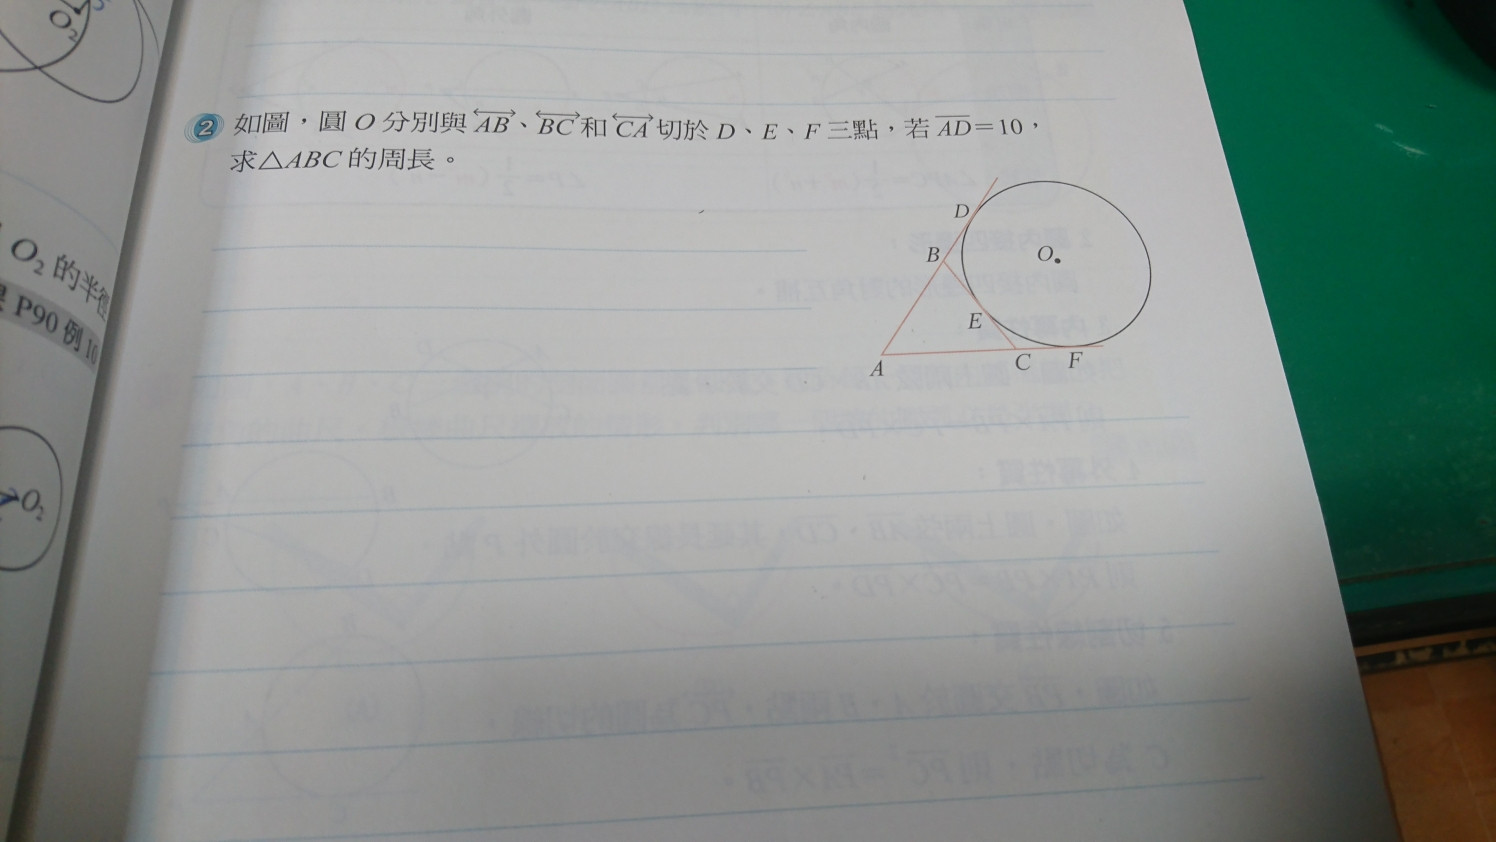 O₂
O₂ 的半徑
P90 例 10
O₂
2 如圖，圓 O 分別與 AB、BC 和 CA 切於 D、E、F 三點，若 AD=10，
求△ABC 的周長。
D
B
O
E
A
C
F